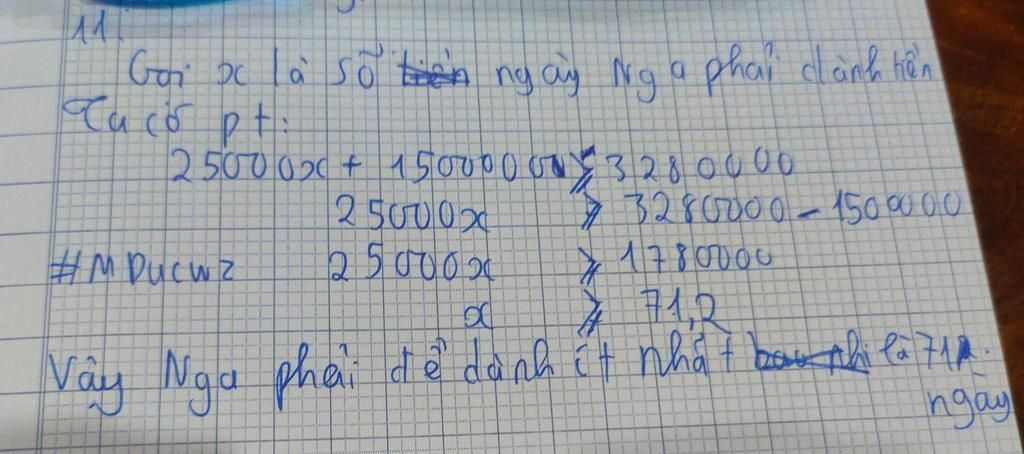 11.
Gọi x là số ngày Nga phải dành tiền
Ta có pt:
25000x + 1500000 ⩾ 3280000
25000x ⩾ 3280000 - 1500000
#MDucwz 25000x ⩾ 1780000
x ⩾ 71,2
Vậy Nga phải để dành ít nhất là 71
ngày